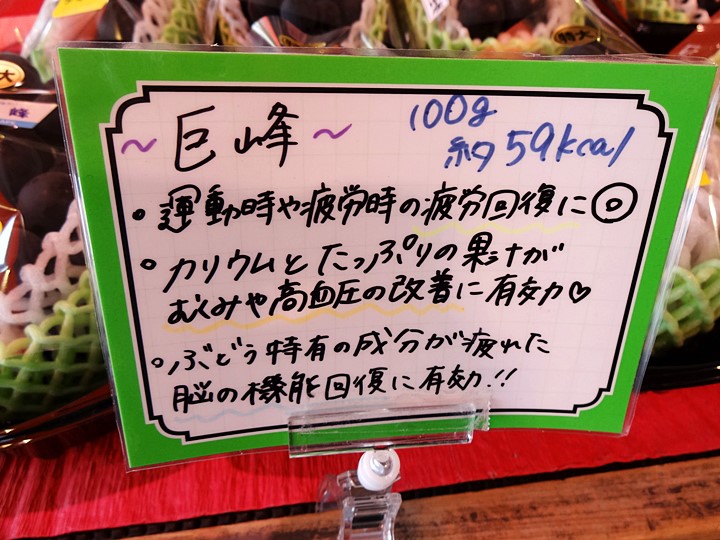 特大
大
峰
~巨峰~
100g
約59kcal
・運動時や疲労時の疲労回復に◎
・カリウムとたっぷりの果汁が
むくみや高血圧の改善に有効♡
・ぶどう特有の成分が疲れた
脳の機能回復に有効!!